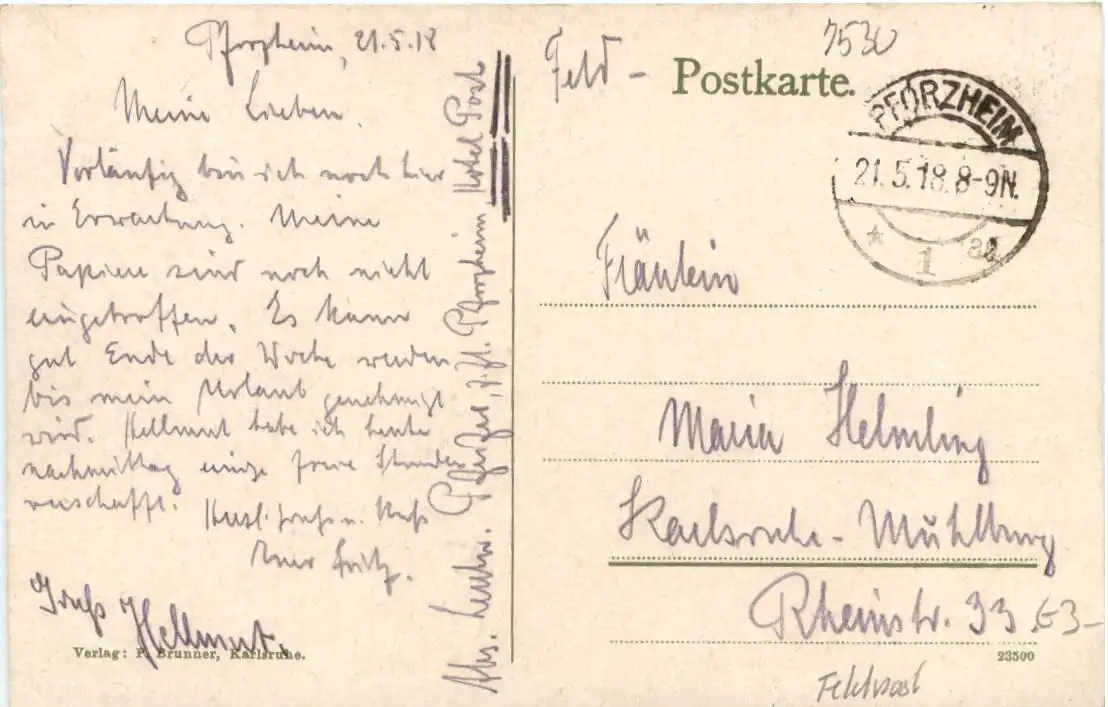 Pforzheim, 21.5.18
Meine Lieben.
Vorläufig bin ich noch hier
in Erwartung. Meine
Papiere sind noch nicht
eingetroffen. Es kann
gut Ende der Woche werden
bis mein Urlaub genehmigt
wird. Hellmut habe ich heute
nachmittag einige freie Stunden
verschafft. Herzl. Gruß u. Kuß
Euer Fritz.
Gruß Hellmut.
Verlag: P. Brunner, Karlsruhe.
Abs. Leutn. z. Zt. Pforzheim Hotel Post
Feld - Postkarte.
7530
PFORZHEIM
21.5.18.8-9N.
* 1 aa
Fräulein
Maria Helmling
Karlsruhe - Mühlburg
Rheinstr. 33
23500
Feldpost